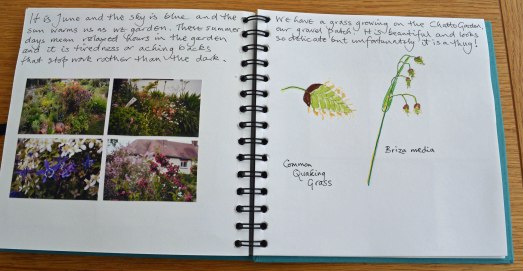 It is June and the sky is blue and the
sun warms us as we garden. These summer
days mean relaxed hours in the garden
and it is tiredness or aching backs
that stop work rather than the dark.
We have a grass growing on the Chatto Garden
our gravel patch. It is beautiful and looks
so delicate but unfortunately it is a thug!
Common
Quaking
Grass
Briza media